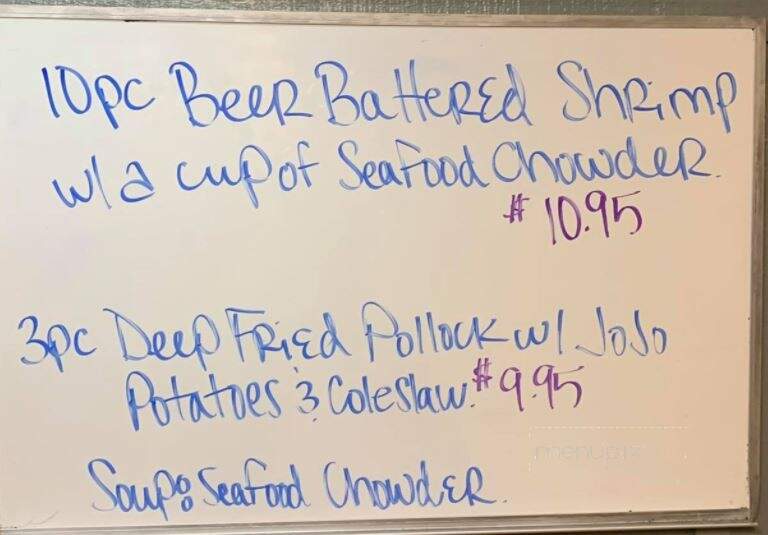 10pc Beer Battered Shrimp
w/ a cup of Seafood Chowder.
# 10.95
3pc Deep Fried Pollock w/ JoJo
Potatoes & Coleslaw. # 9.95
Soup: Seafood Chowder.
menupix